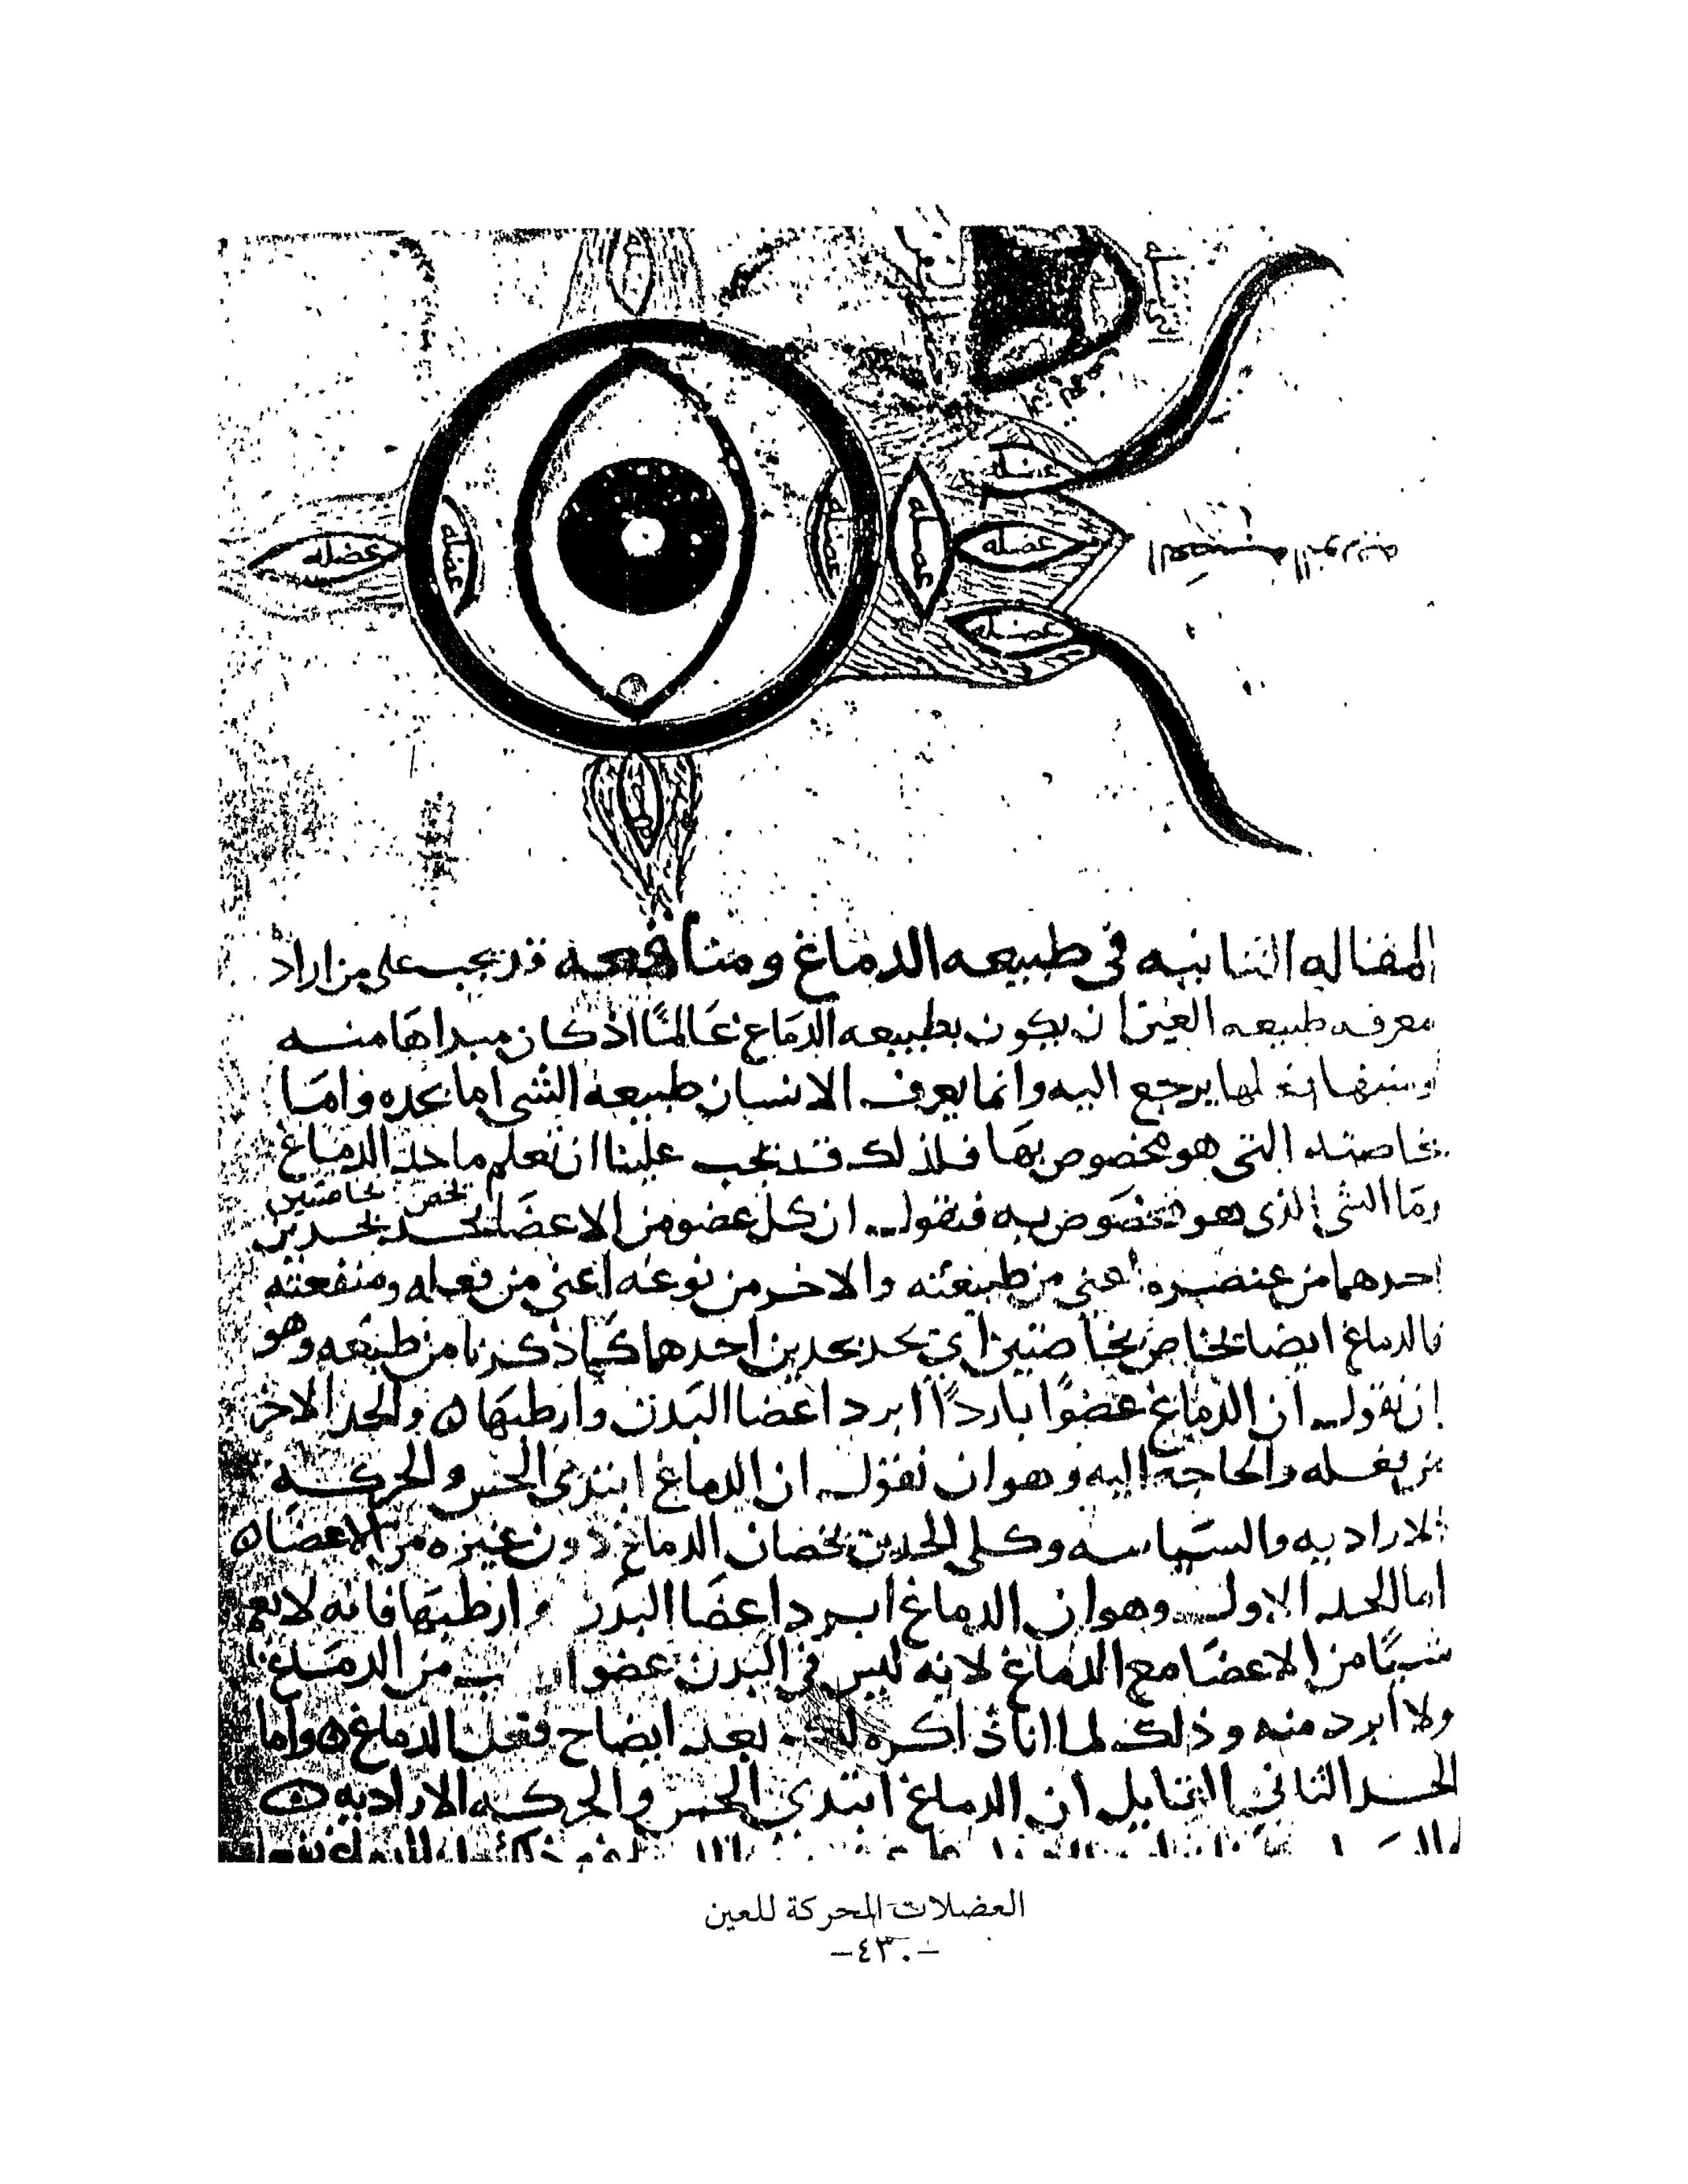 عضله
عضله
عضله
عضله
عضله
عضله
عضله
عضله
المقاله الثانيه في طبيعه الدماغ ومنافعه قد يجب على من اراد
معرفه طبيعه العين ان يكون بطبيعه الدماغ عالمًا اذ كان مبداها منه
لها يرجع اليه وانما يعرف الانسان طبيعه الشى اما بحده واما
بخاصته التى هو مخصوص بها فلذلك قد يجب علينا ان نعلم ما حد الدماغ
وما الشى الذى هو مخصوص به فنقول ان كل عضو من الاعضا يحد بحدين
يخص بخاصتين
احدهما من عنصره اعني من طبيعته والاخر من نوعه اعني من فعله ومنفعته
فالدماغ ايضا بخاصتين اي يحد بحدين احدهما كما ذكرنا من طبعه وهو
ان نقول ان الدماغ عضوًا باردًا ابرد اعضا البدن وارطبها ه والحد الاخر
من فعله والحاجه اليه وهو ان نقول ان الدماغ ابتدى الحس والحركه
الاراديه والسياسه وكلى الحدين يخصان الدماغ دون غيره من الاعضا ه
اما الحد الاول وهو ان الدماغ ابرد اعضا البدن وارطبها فانه لا يعم
شيًا من الاعضا مع الدماغ لانه ليس في البدن عضوا من الدماغ
ولا ابرد منه وذلك لما انا ذاكره لك بعد ايضاح فعل الدماغ ه واما
الحد الثاني القايل ان الدماغ ابتدى الحس والحركه الاراديه ه
العضلات المحركة للعين
-٤٣٠-